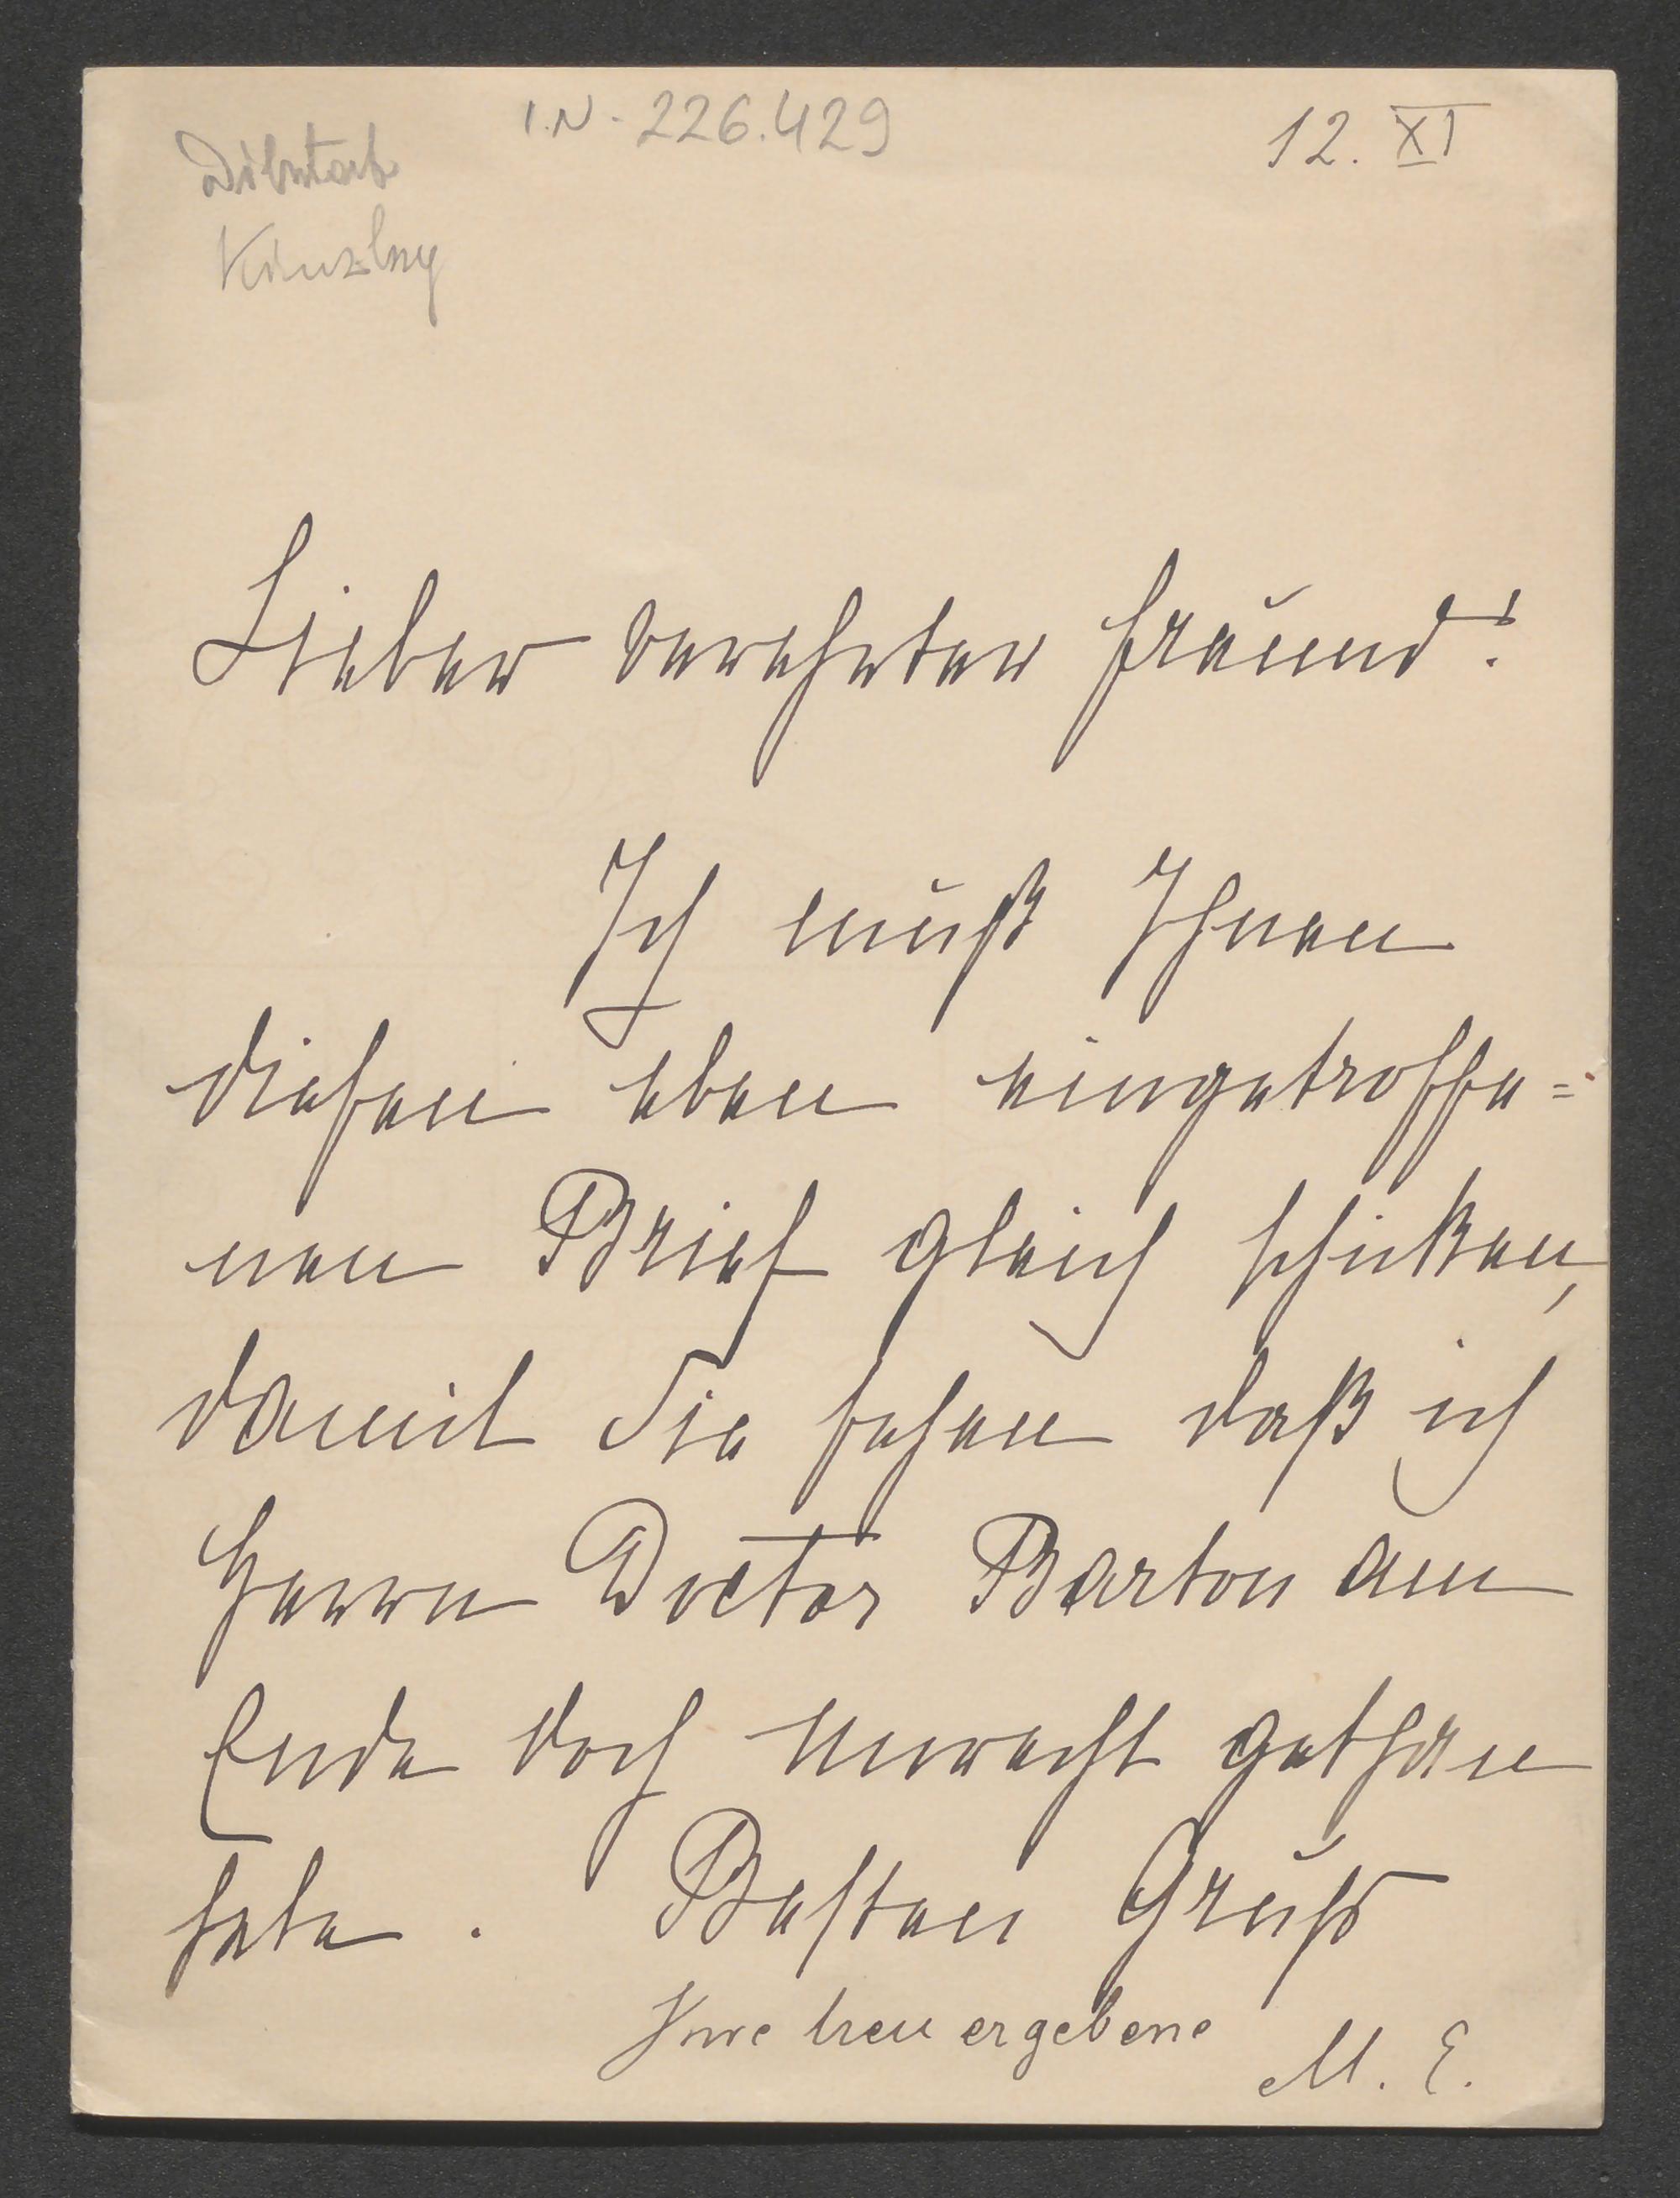 I.N. 226.429
12. XI
Lieber verehrter Freund!
Ich muß Ihnen
diesen eben eingetroffe=
nen Brief gleich schicken,
damit Sie sehen daß ich
Herrn Doctor Barton am
Ende doch unrecht gethan
habe. Besten Gruß
Ihre treu ergebene
M. E.